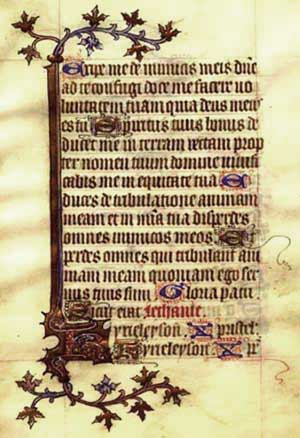 Eripe me de inimicis meis dñe
ad te confugi doce me facere vo
luntatem tuam quia deus meus
es tu Spiritus tuus bonus de
ducet me in terram rectam prop
ter nomen tuum domine vivifi
cabis me in equitate tua E
duces de tribulatione animam
meam et in mĩa tua disperdes
omnes inimicos meos Et
perdes omnes qui tribulant ani
mam meam quoniam ego ser
vus tuus sum Gloria patri
Sicut erat
Kyrieleyson
Kyrieleyson